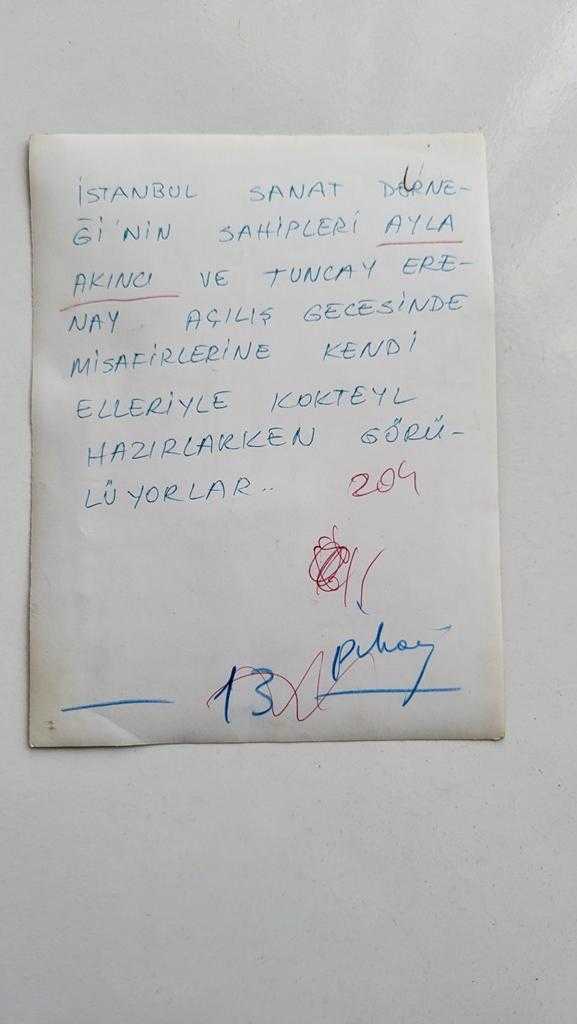 İSTANBUL SANAT DERNE-
Ğİ'NİN SAHİPLERİ AYLA
AKINCI VE TUNCAY ERE-
NAY AÇILIŞ GECESİNDE
MİSAFİRLERİNE KENDİ
ELLERİYLE KOKTEYL
HAZIRLARKEN GÖRÜ-
LÜYORLAR..
204
13